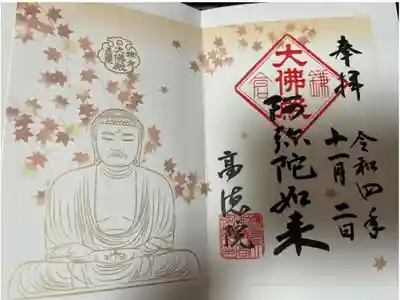 奉拝
令和四年
十一月二日
大佛殿
鎌倉
阿弥陀如来
高徳院
大佛殿